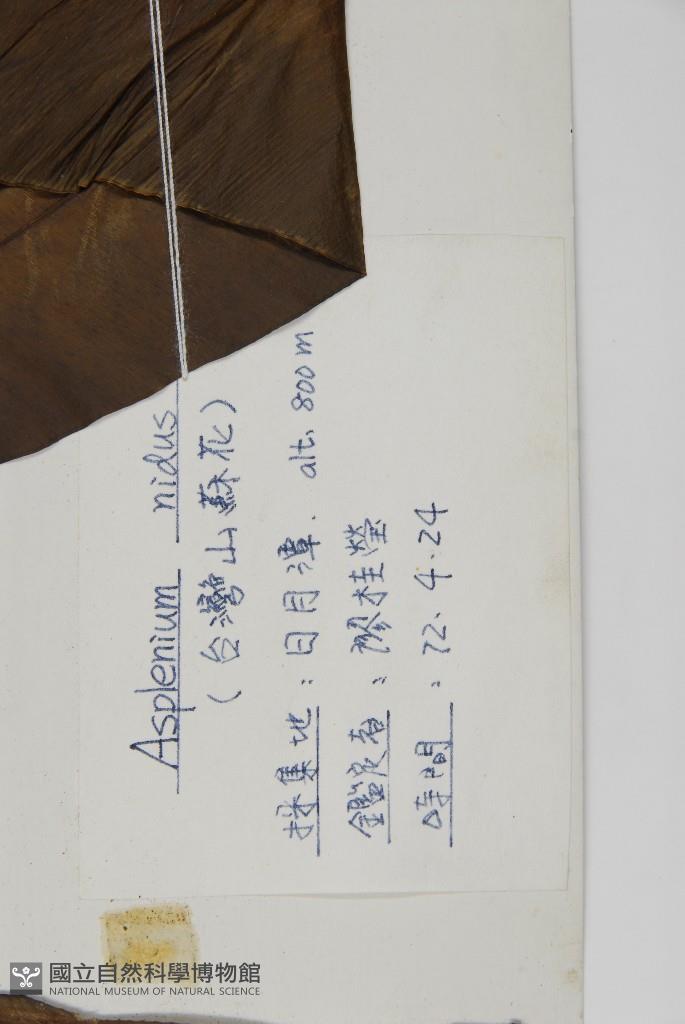 Asplenium nidus
(台灣山蘇花)
採集地:日月潭. alt. 800m
鑑定者:廖桂瑩
時間:72.4.24
國立自然科學博物館
NATIONAL MUSEUM OF NATURAL SCIENCE